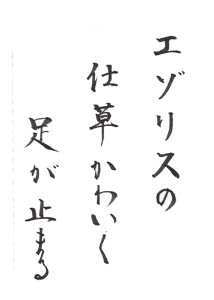 エゾリスの
仕草かわいく
足が止まる